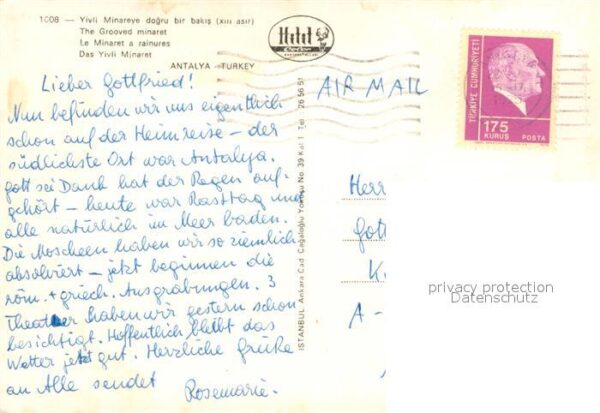 1608 — Yivli Minareye doğru bir bakış (xııı asır)
The Grooved minaret
Le Minaret a rainures
Das Yivli Minaret
ANTALYA - TURKEY
Hitit
Color
İSTANBUL Ankara Cad Cağaloğlu Yokuşu No. 39 Kat 1 Tel : 26 56 51
AIR MAIL
TÜRKİYE CUMHURİYETİ
175
KURUŞ POSTA
Lieber Gottfried!
Nun befinden wir uns eigentlich
schon auf der Heimreise – der
südlichste Ort war Antalya.
Gott sei Dank hat der Regen auf-
gehört – heute war Rasttag und
alle natürlich im Meer baden.
Die Moscheen haben wir so ziemlich
absolviert – jetzt beginnen die
röm. + griech. Ausgrabungen. 3
Theater haben wir gestern schon
besichtigt. Hoffentlich bleibt das
Wetter jetzt gut. Herzliche Grüße
an Alle sendet
Rosemarie.
Herr
Got
K
A -
privacy protection
Datenschutz